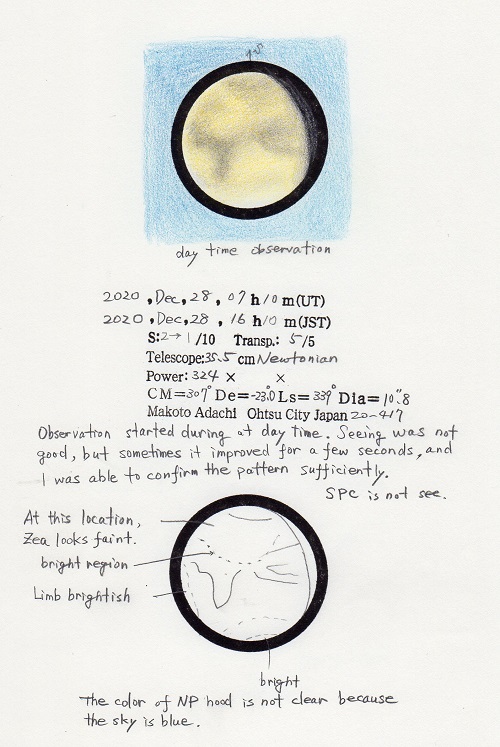 day time observation
2020, Dec, 28, 07 h 10 m (UT)
2020, Dec, 28, 16 h 10 m (JST)
S: 2→1 /10 Transp.: 5/5
Telescope: 35.5 cm Newtonian
Power: 324 × ×
CM=307° De=-23.0 Ls=339° Dia=10".8
Makoto Adachi Ohtsu City Japan 20-417
Observation started during at day time. Seeing was not
good, but sometimes it improved for a few seconds, and
I was able to confirm the pattern sufficiently.
SPC is not see.
At this location,
Zea looks faint.
bright region
Limb brightish
bright
The color of NP hood is not clear because
the sky is blue.